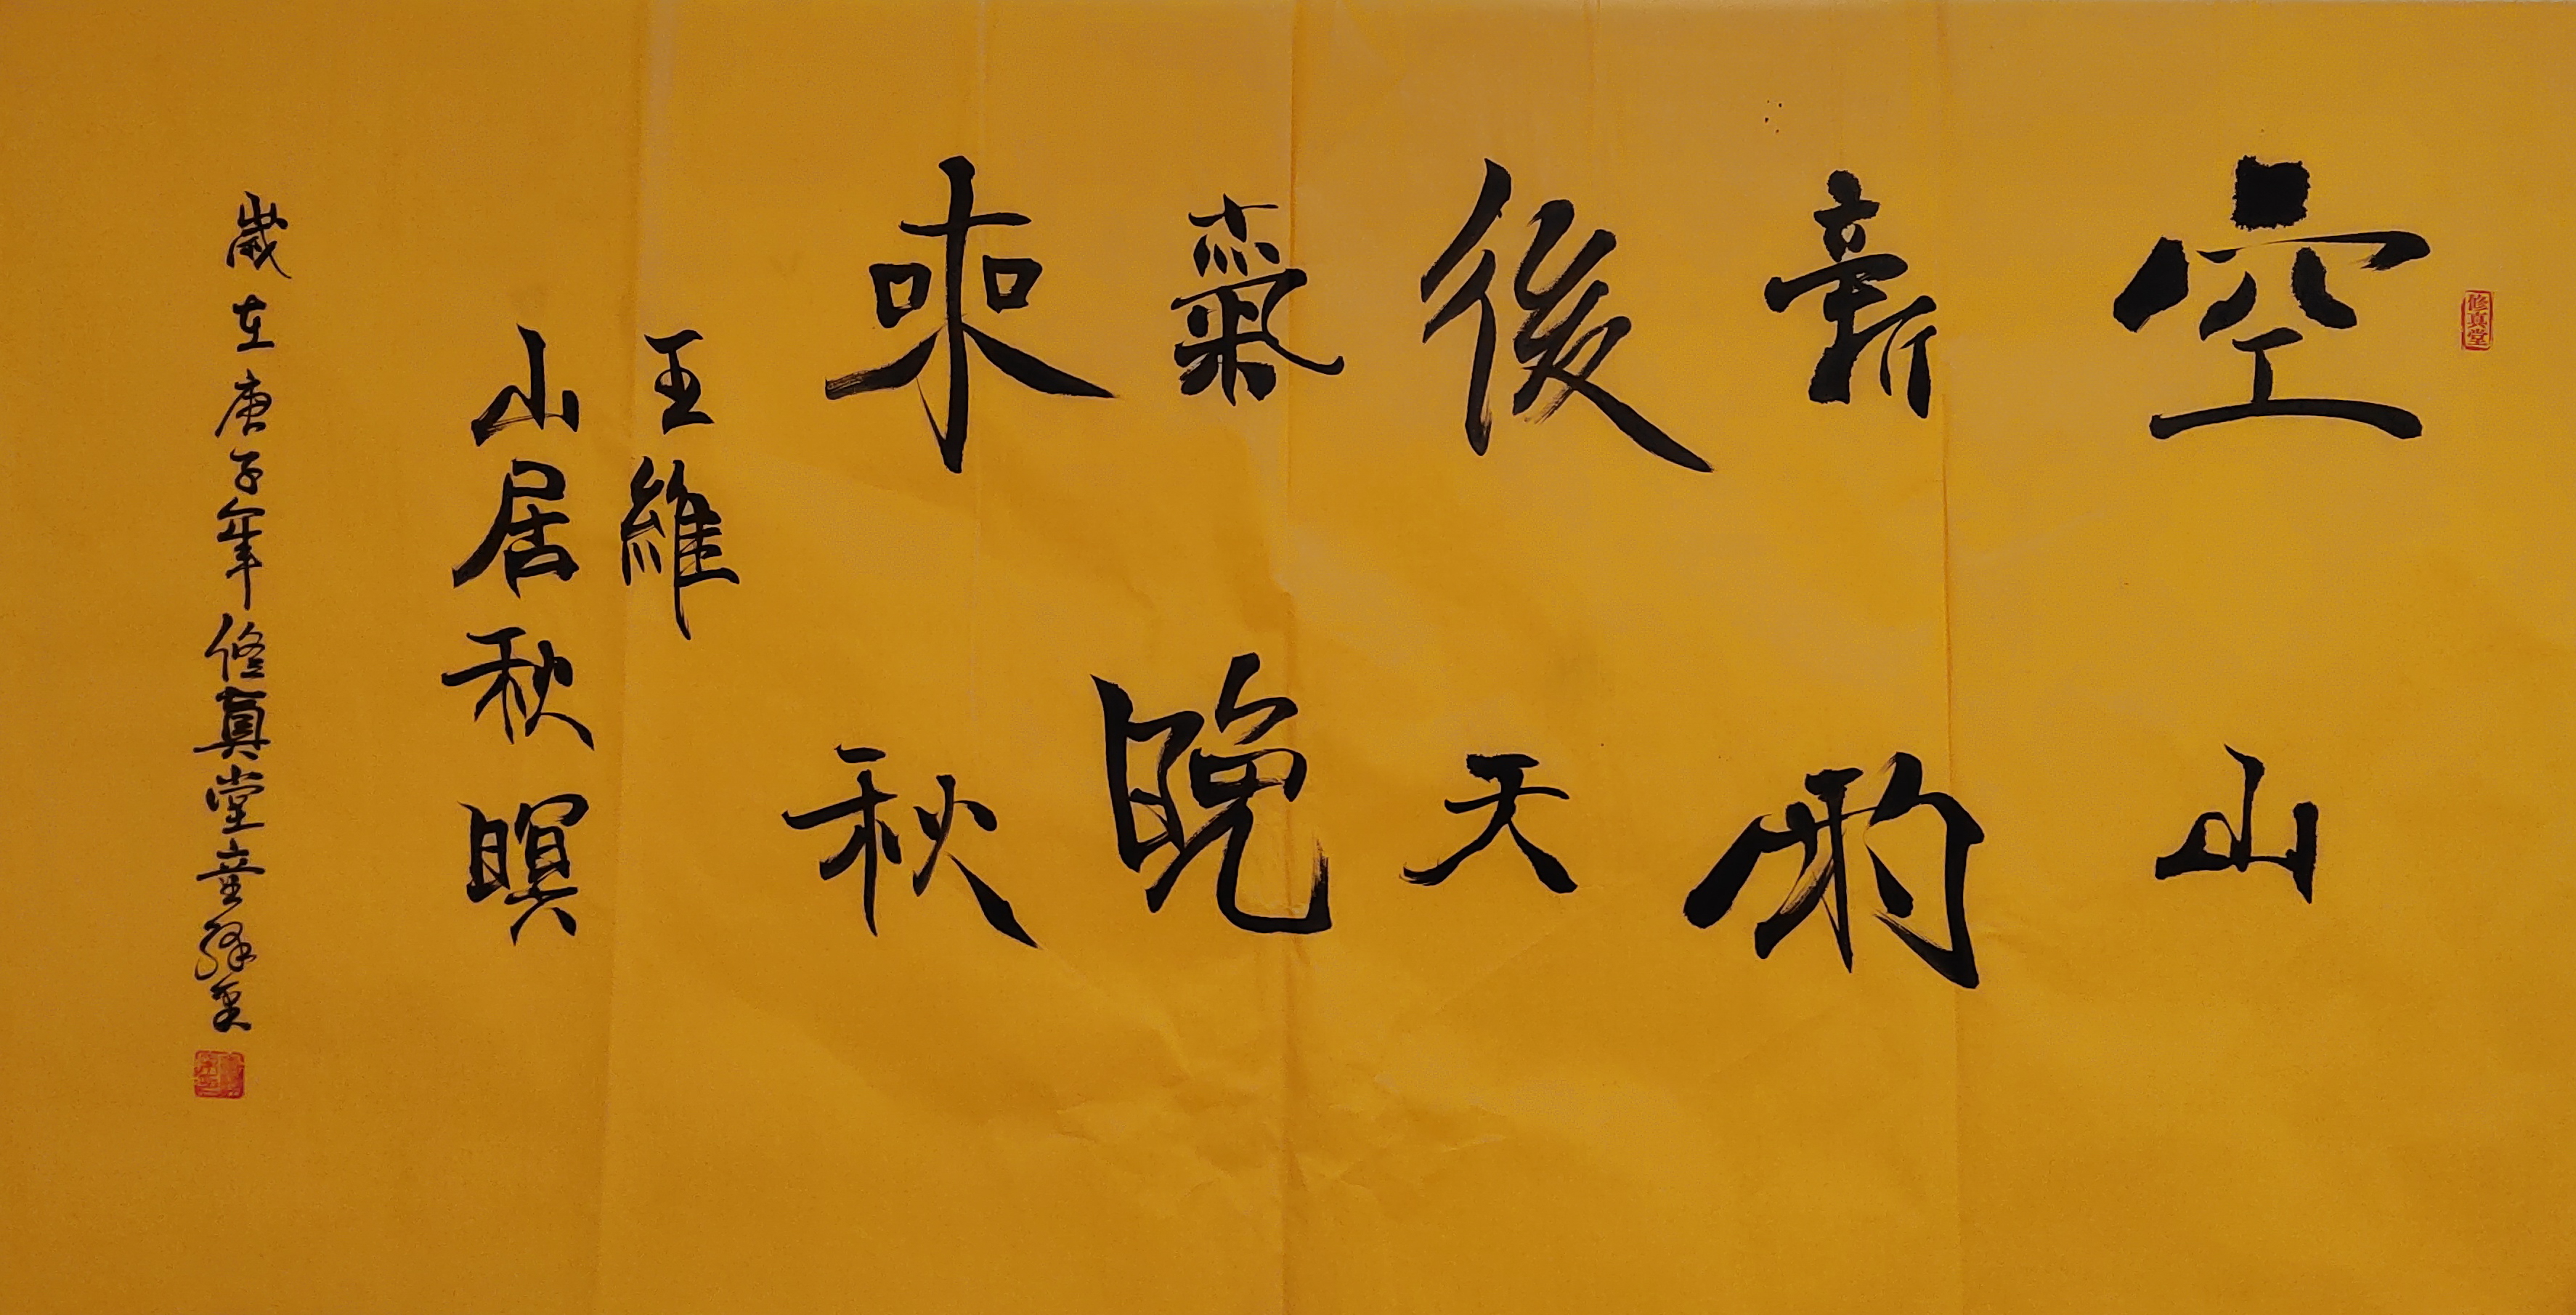 修真堂
空山
新雨
後天
氣晚
來秋
王維
山居秋暝
歲在庚子年修真堂童